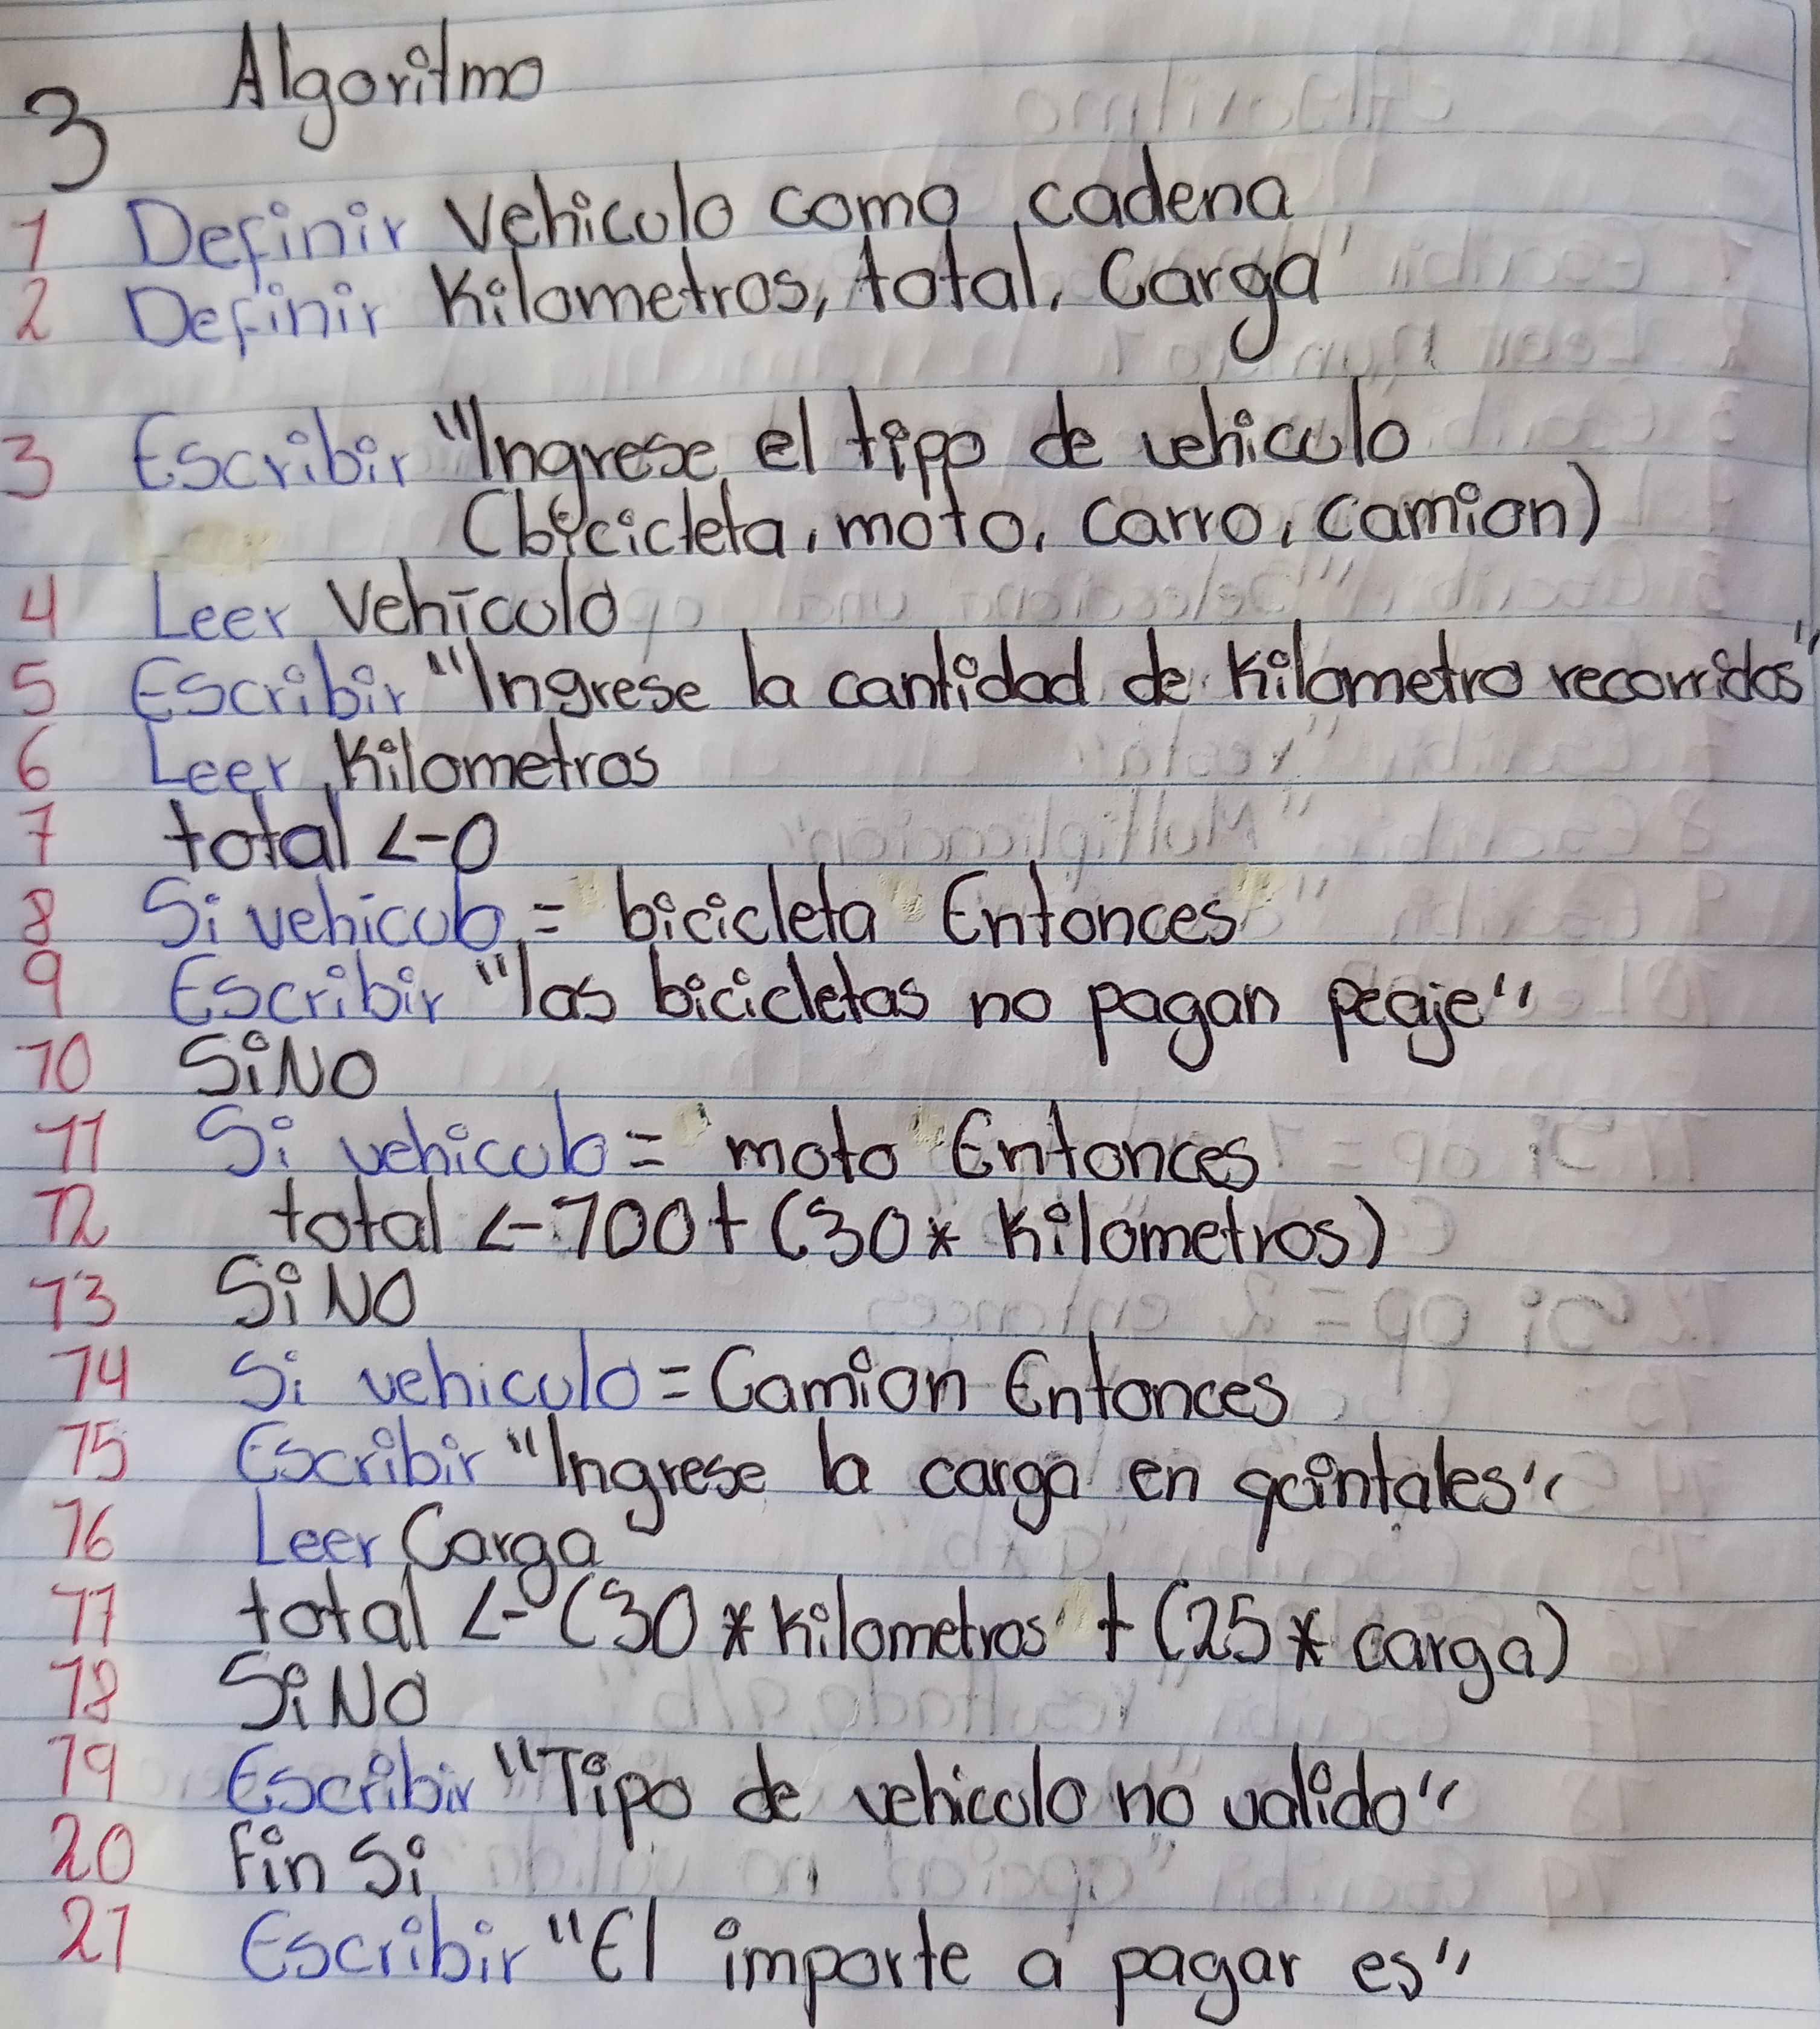 3 Algoritmo
1 Definir vehiculo como cadena
2 Definir Kilometros, total, Carga
3 Escribir "Ingrese el tipo de vehiculo
(bicicleta, moto, carro, camion)
4 Leer Vehiculo
5 Escribir "Ingrese la cantidad de kilometro recorridos"
6 Leer Kilometros
7 total <-0
8 Si vehiculo = bicicleta Entonces
9 Escribir "las bicicletas no pagan peaje"
10 SiNO
11 Si vehiculo = moto Entonces
12 total <-100+(30* kilometros)
13 SiNO
14 Si vehiculo = Camion Entonces
15 Escribir "Ingrese la carga en quintales"
16 Leer Carga
17 total <- (30 * kilometros + (25 * carga)
18 SiNo
19 Escribir "Tipo de vehiculo no valido"
20 Fin Si
21 Escribir "El importe a pagar es"